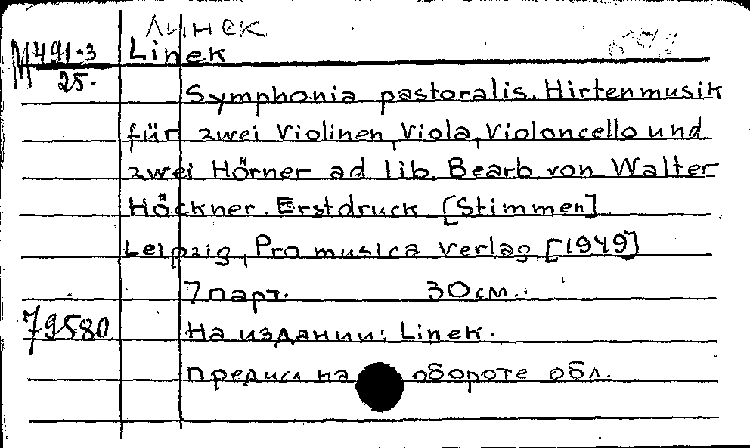 Линек
М 491-3 Linek
25.
Symphonia pastoralis. Hirtenmusik
für zwei Violinen, Viola, Violoncello und
zwei Hörner ad lib. Bearb. von Walter
Höckner. Erstdruck [Stimmen]
Leipzig, Pro musica Verlag [1949]
7 парт. 30 см.
79580
На издании: Linek.
предисл на обороте обл.